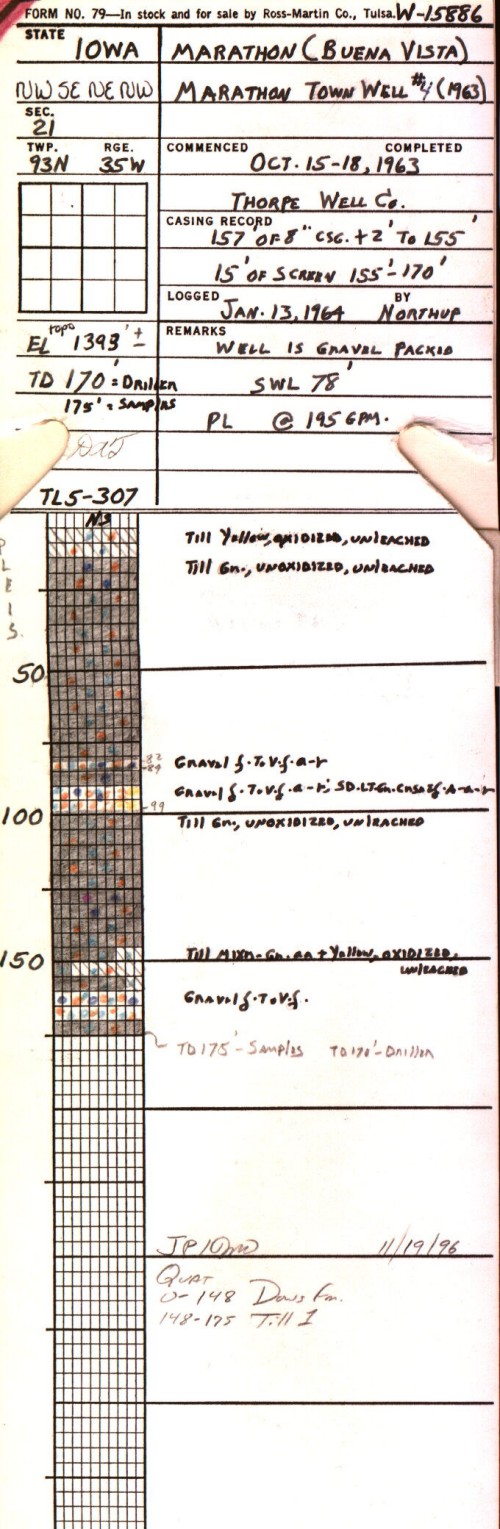 FORM NO. 79—In stock and for sale by Ross-Martin Co., Tulsa. W-15886
STATE IOWA
MARATHON (BUENA VISTA)
NW SE NE NW
MARATHON TOWN WELL #4 (1963)
SEC.
21
TWP. RGE.
93N 35W
COMMENCED COMPLETED
OCT. 15-18, 1963
THORPE WELL CO.
CASING RECORD
157' OF 8" CSG. +2' TO 155'
15' OF SCREEN 155'-170'
LOGGED BY
JAN. 13, 1964 NORTHUP
EL topo 1393' ±
REMARKS
WELL IS GRAVEL PACKED
TD 170' = DRILLER
175' = SAMPLES
SWL 78'
PL @ 195 GPM.
TLS-307
NS
PLEIS.
Till Yellow, OXIDIZED, UNLEACHED
Till Gn., UNOXIDIZED, UNLEACHED
50
82
84
GRAVEL f. To V.f. a-r
GRAVEL f. To V.f. a-r; SD. LT. Gn. CRSE f. A-a-r
99
100
Till Gn., UNOXIDIZED, UNLEACHED
150
Till MIXD - Gn. aa + Yellow, OXIDIZED, UNLEACHED
GRAVEL f. To V.f.
TD 175' - Samples TD 170' - Driller
11/19/96
QUAT
0-148 Dows Fm.
148-175 Till 1